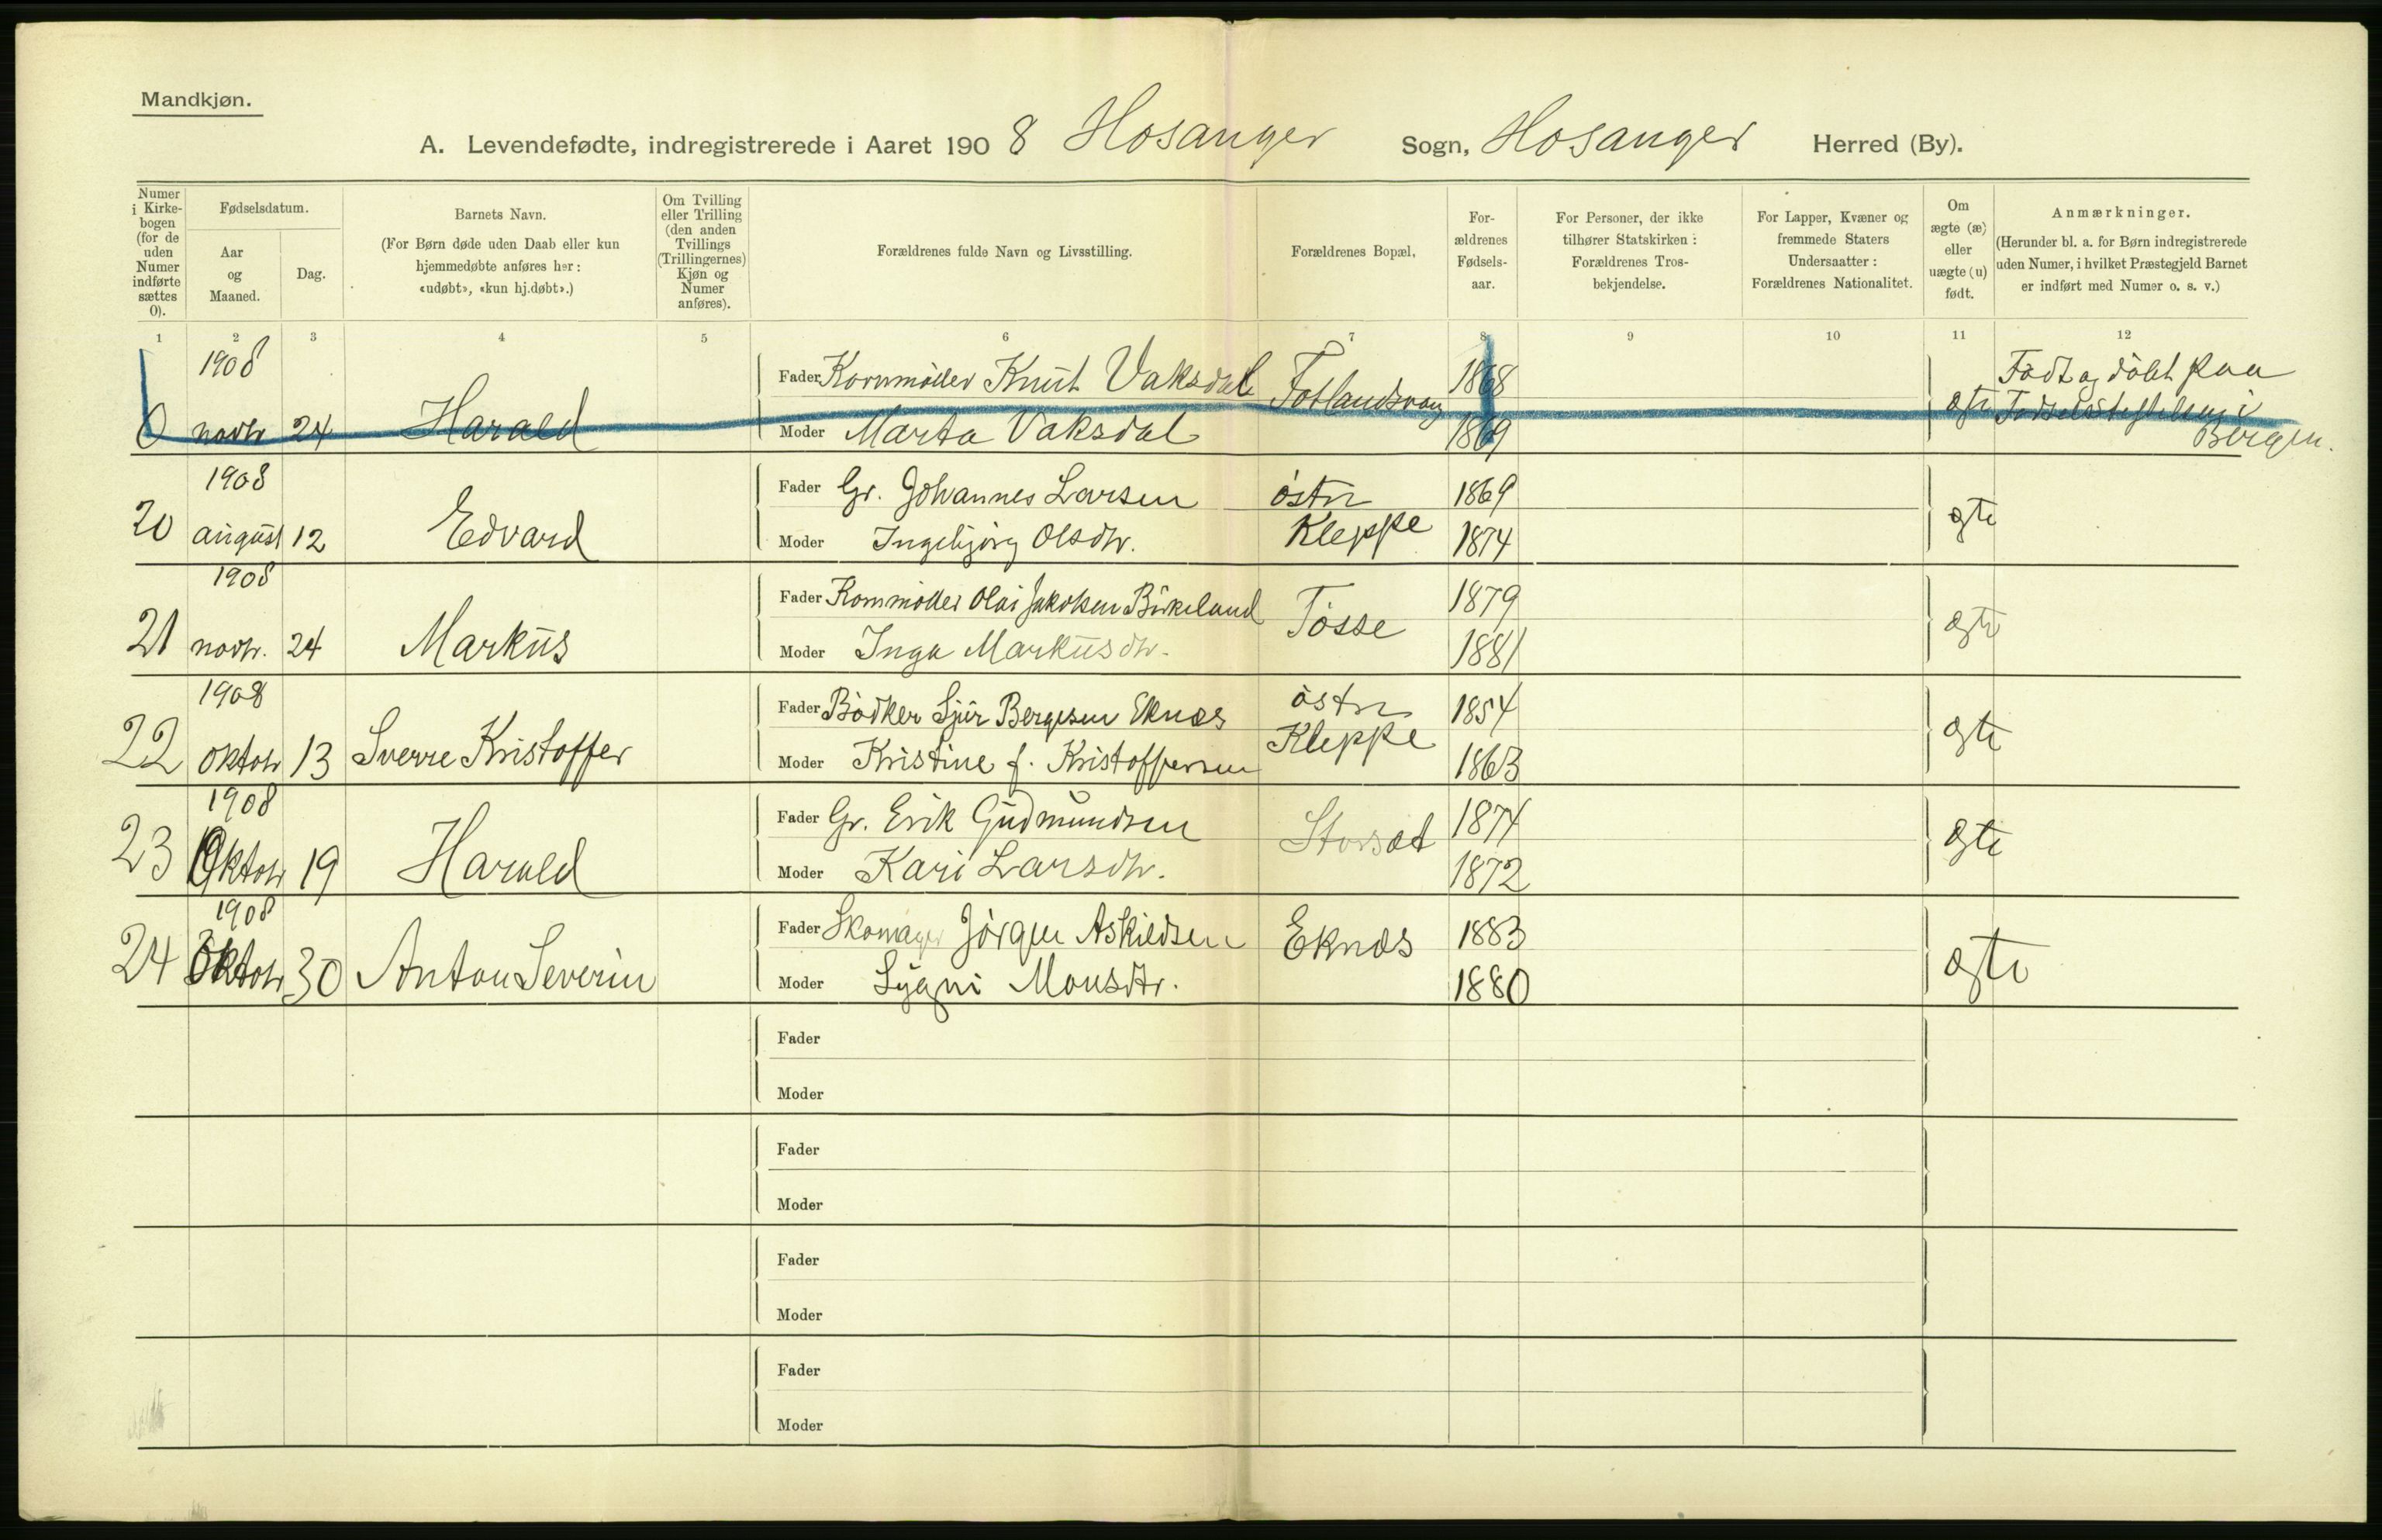 Mandkjøn.
A. Levendefødte, indregistrerede i Aaret 1908 Hosanger Sogn, Hosanger Herred (By).
Numer i Kirkebogen (for de uden Numer indførte sættes 0).
Fødselsdatum.
Aar og Maaned.
Dag.
Barnets Navn.
(For Børn døde uden Daab eller kun hjemmedøbte anføres her: «udøbt», «kun hj.døbt».)
Om Tvilling eller Trilling (den anden Tvillings (Trillingernes) Kjøn og Numer anføres).
Forældrenes fulde Navn og Livsstilling.
Forældrenes Bopæl,
Forældrenes Fødselsaar.
For Personer, der ikke tilhører Statskirken: Forældrenes Trosbekjendelse.
For Lapper, Kvæner og fremmede Staters Undersaatter: Forældrenes Nationalitet.
Om ægte (æ) eller uægte (u) født.
Anmærkninger.
(Herunder bl. a. for Børn indregistrerede uden Numer, i hvilket Præstegjeld Barnet er indført med Numer o. s. v.)
1 2 3 4 5 6 7 8 9 10 11 12
1908 Fader Kornmöller Knut Vaksdal Fotlandsvaag 1868 Födt og döbt paa
0 novbr 24 Harald Moder Marta Vaksdal 1869 ægte Födselsstiftelsen i
Bergen.
1908 Fader Gr. Johannes Larsen östre 1869
20 august 12 Edvard Moder Ingebjörg Olsdtr. Kleppe 1874 ægte
1908 Fader Kornmöller Olai Jakobsen Birkeland Tösse 1879
21 novbr. 24 Markus Moder Inga Markusdtr. 1881 ægte
1908 Fader Bödker Sjur Bergesen Eknæs östre 1854
22 oktobr 13 Sverre Kristoffer Moder Kristine f. Kristoffersen Kleppe 1863 ægte
1908 Fader Gr. Erik Gudmundsen Storsæt 1874
23 Oktobr 19 Harald Moder Kari Larsdtr. 1872 ægte
1908 Fader Skomager Jörgen Askildsen Eknæs 1883
24 Oktobr 30 Anton Severin Moder Sygni Monsdtr. 1880 ægte
Fader
Moder
Fader
Moder
Fader
Moder
Fader
Moder